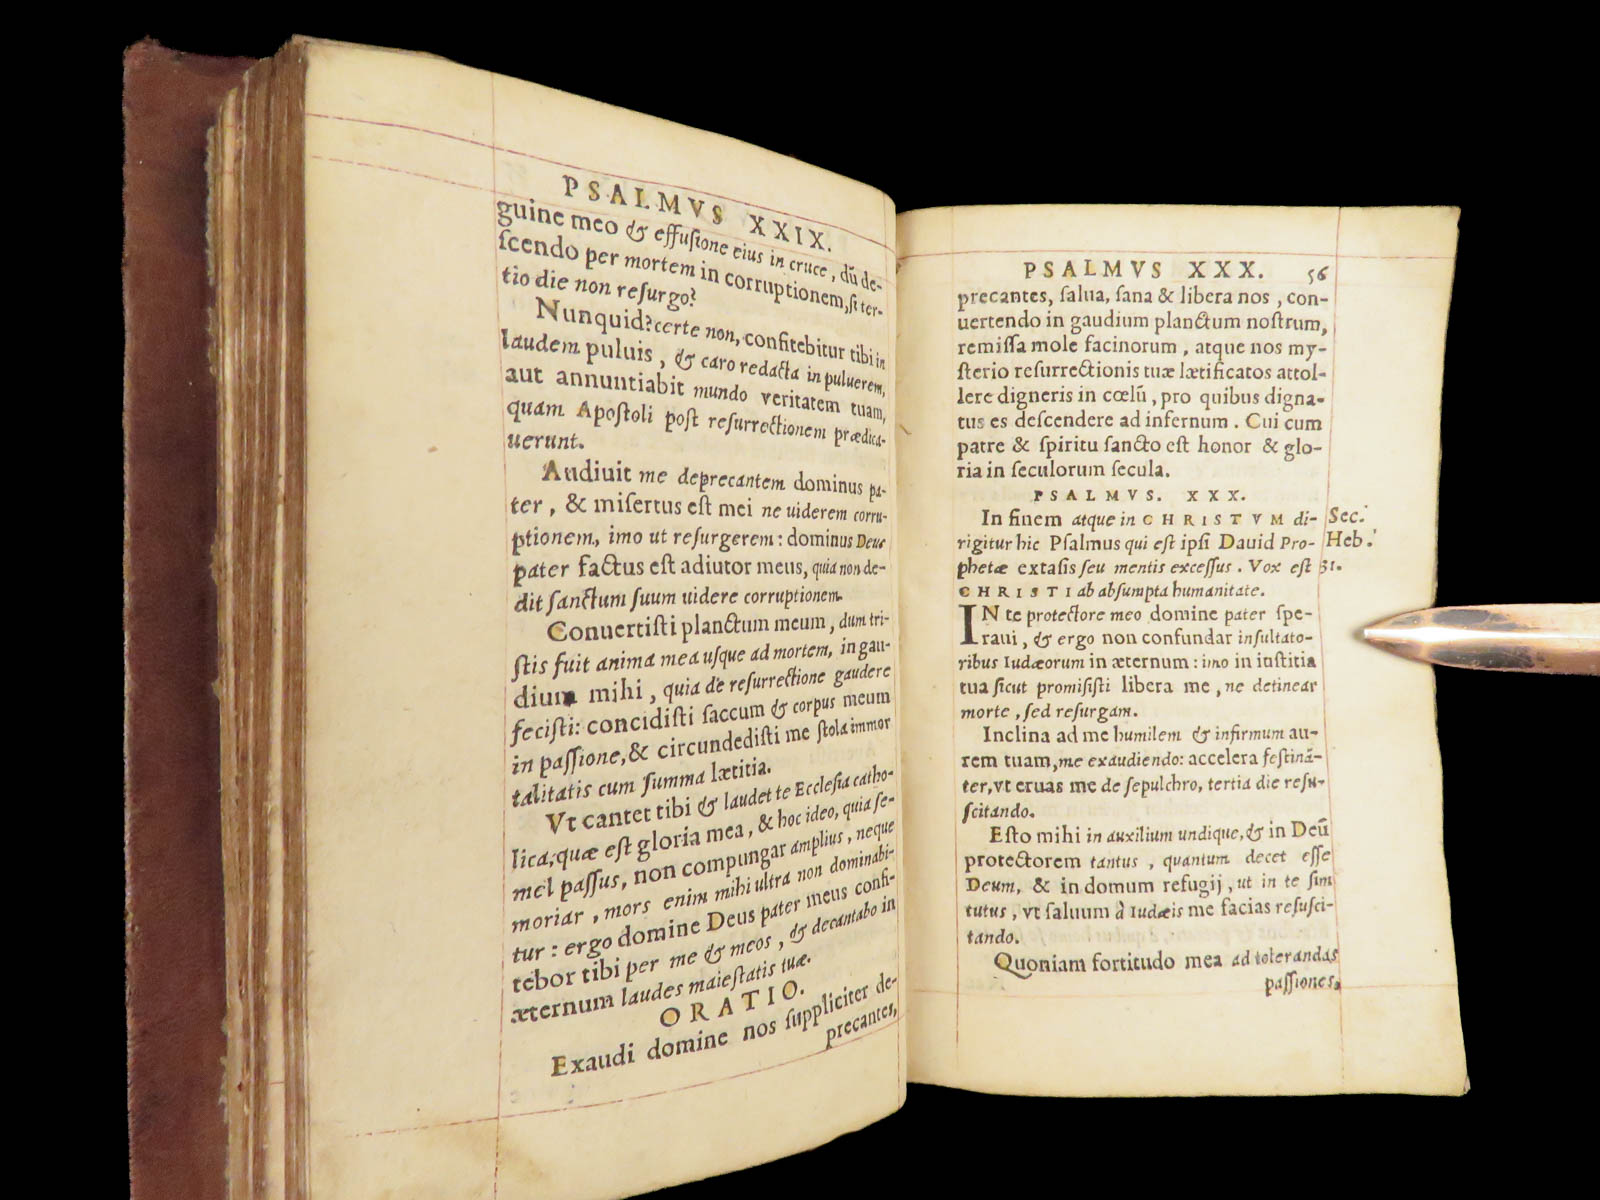 PSALMVS XXIX.
guine meo & effuſione eius in cruce, dũ de-
ſcendo per mortem in corruptionem, ſi ter-
tio die non reſurgo?
Nunquid? certe non, confitebitur tibi in
laudem puluis, & caro redacta in puluerem,
aut annuntiabit mundo veritatem tuam,
quam Apoſtoli poſt reſurrectionem prædica-
uerunt.
Audiuit me deprecantem dominus pa-
ter, & miſertus eſt mei ne uiderem corru-
ptionem, imo ut reſurgerem: dominus Deus
pater factus eſt adiutor meus, quia non de-
dit ſanctum ſuum uidere corruptionem.
Conuertiſti planctum meum, dum tri-
ſtis fuit anima mea uſque ad mortem, in gau-
dium mihi, quia de reſurrectione gaudere
feciſti: concidiſti ſaccum & corpus meum
in paſſione, & circundediſti me ſtola immor
talitatis cum ſumma lætitia.
Vt cantet tibi & laudet te Eccleſia catho-
lica, quæ eſt gloria mea, & hoc ideo, quia ſe-
mel paſſus, non compungar amplius, neque
moriar, mors enim mihi ultra non dominabi-
tur: ergo domine Deus pater meus confi-
tebor tibi per me & meos, & decantabo in
æternum laudes maieſtatis tuæ.
ORATIO.
Exaudi domine nos ſuppliciter de-
precantes,
PSALMVS XXX. 56
precantes, ſalua, ſana & libera nos, con-
uertendo in gaudium planctum noſtrum,
remiſſa mole facinorum, atque nos my-
ſterio reſurrectionis tuæ lætificatos attol-
lere digneris in cœlũ, pro quibus digna-
tus es deſcendere ad infernum. Cui cum
patre & ſpiritu ſancto eſt honor & glo-
ria in ſeculorum ſecula.
PSALMVS. XXX.
In finem atque in CHRISTVM di- Sec.
rigitur hic Pſalmus qui eſt ipſi Dauid Pro- Heb.
phetæ extaſis ſeu mentis exceſſus. Vox eſt 31.
CHRISTI ab abſumpta humanitate.
IN te protectore meo domine pater ſpe-
raui, & ergo non confundar inſultato-
ribus Iudæorum in æternum: imo in iuſtitia
tua ſicut promiſiſti libera me, ne detinear
morte, ſed reſurgam.
Inclina ad me humilem & infirmum au-
rem tuam, me exaudiendo: accelera feſtinã-
ter, vt eruas me de ſepulchro, tertia die reſu-
ſcitando.
Eſto mihi in auxilium undique, & in Deũ
protectorem tantus, quantum decet eſſe
Deum, & in domum refugij, ut in te ſim
tutus, vt ſaluum à Iudæis me facias reſuſci-
tando.
Quoniam fortitudo mea ad tolerandas
paſſiones,